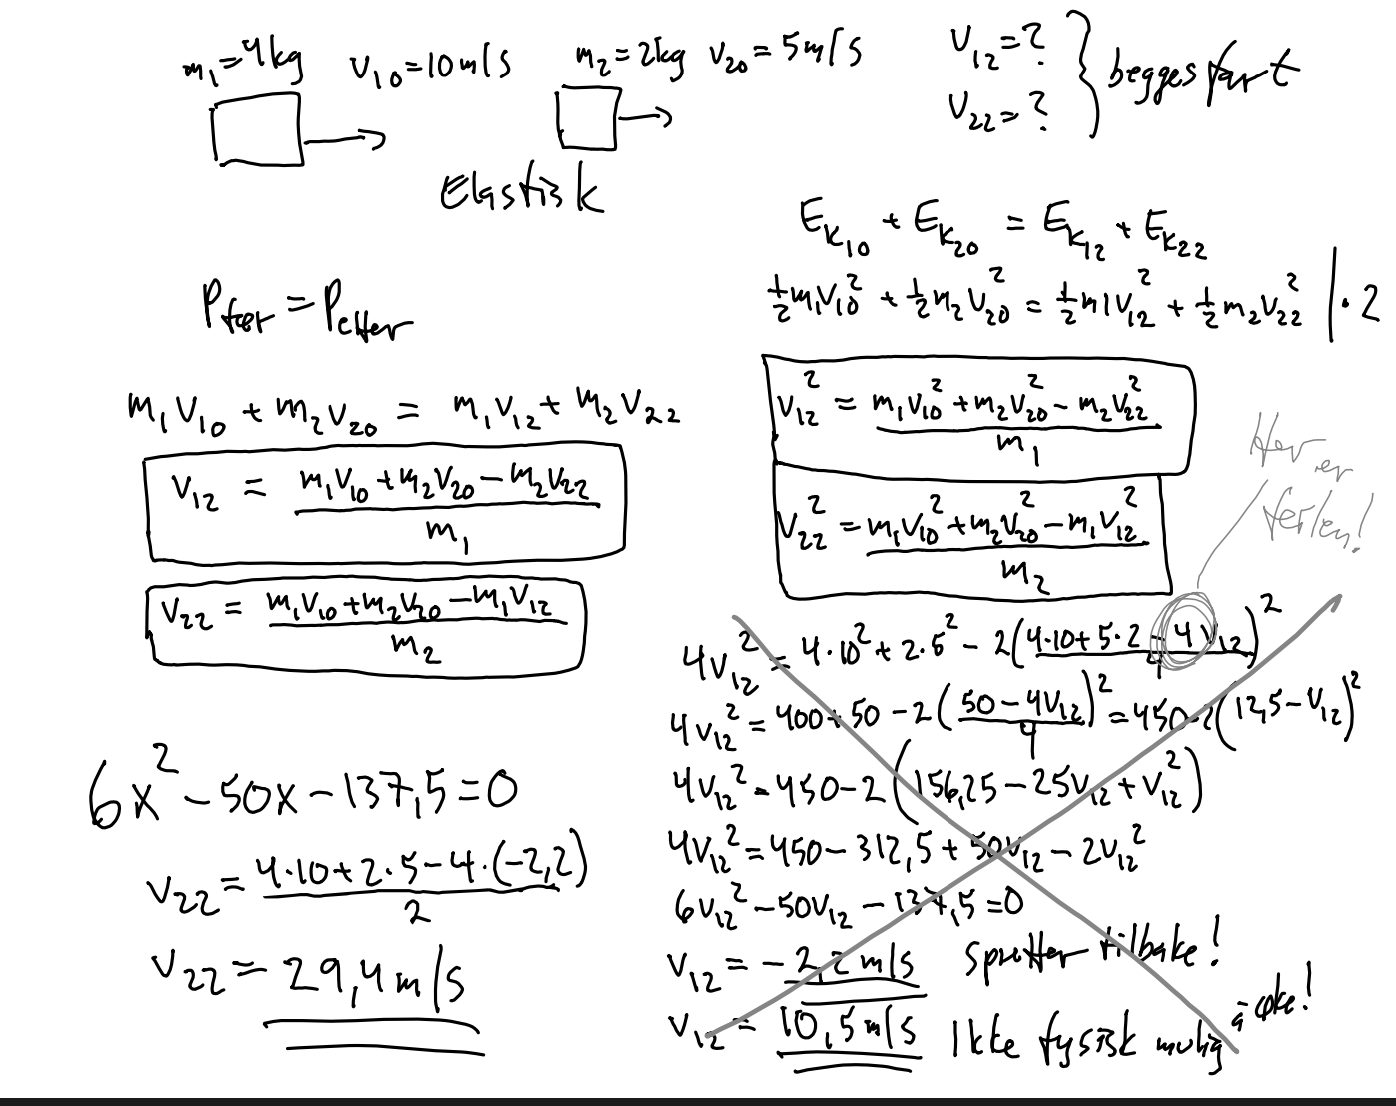 m₁=4kg V₁₀=10m/s m₂=2kg V₂₀=5m/s
V₁₂=?
V₂₂=?
begges fart
Elastisk
P_før = P_etter
m₁V₁₀ + m₂V₂₀ = m₁V₁₂ + m₂V₂₂
V₁₂ = (m₁V₁₀ + m₂V₂₀ - m₂V₂₂)/m₁
V₂₂ = (m₁V₁₀ + m₂V₂₀ - m₁V₁₂)/m₂
E_k₁₀ + E_k₂₀ = E_k₁₂ + E_k₂₂
½m₁V₁₀² + ½m₂V₂₀² = ½m1V₁₂² + ½m₂V₂₂² |·2
V₁₂² = (m₁V₁₀² + m₂V₂₀² - m₂V₂₂²)/m₁
V₂₂² = (m₁V₁₀² + m₂V₂₀² - m₁V₁₂²)/m₂
Her er
feilen!
4V₁₂² = 4·10² + 2·5² - 2((4·10+5·2-4V₁₂)/4)²
4V₁₂² = 400+50-2((50-4V₁₂)/4)² = 450-2(12,5-V₁₂)²
4V₁₂² = 450-2(156,25-25V₁₂+V₁₂²)
4V₁₂² = 450-312,5+50V₁₂-2V₁₂²
6V₁₂² - 50V₁₂ - 137,5 = 0
V₁₂ = -2,2 m/s spretter tilbake!
V₁₂ = 10,5 m/s Ikke fysisk mulig å øke!
6x² - 50x - 137,5 = 0
V₂₂ = (4·10+2·5-4·(-2,2))/2
V₂₂ = 29,4 m/s